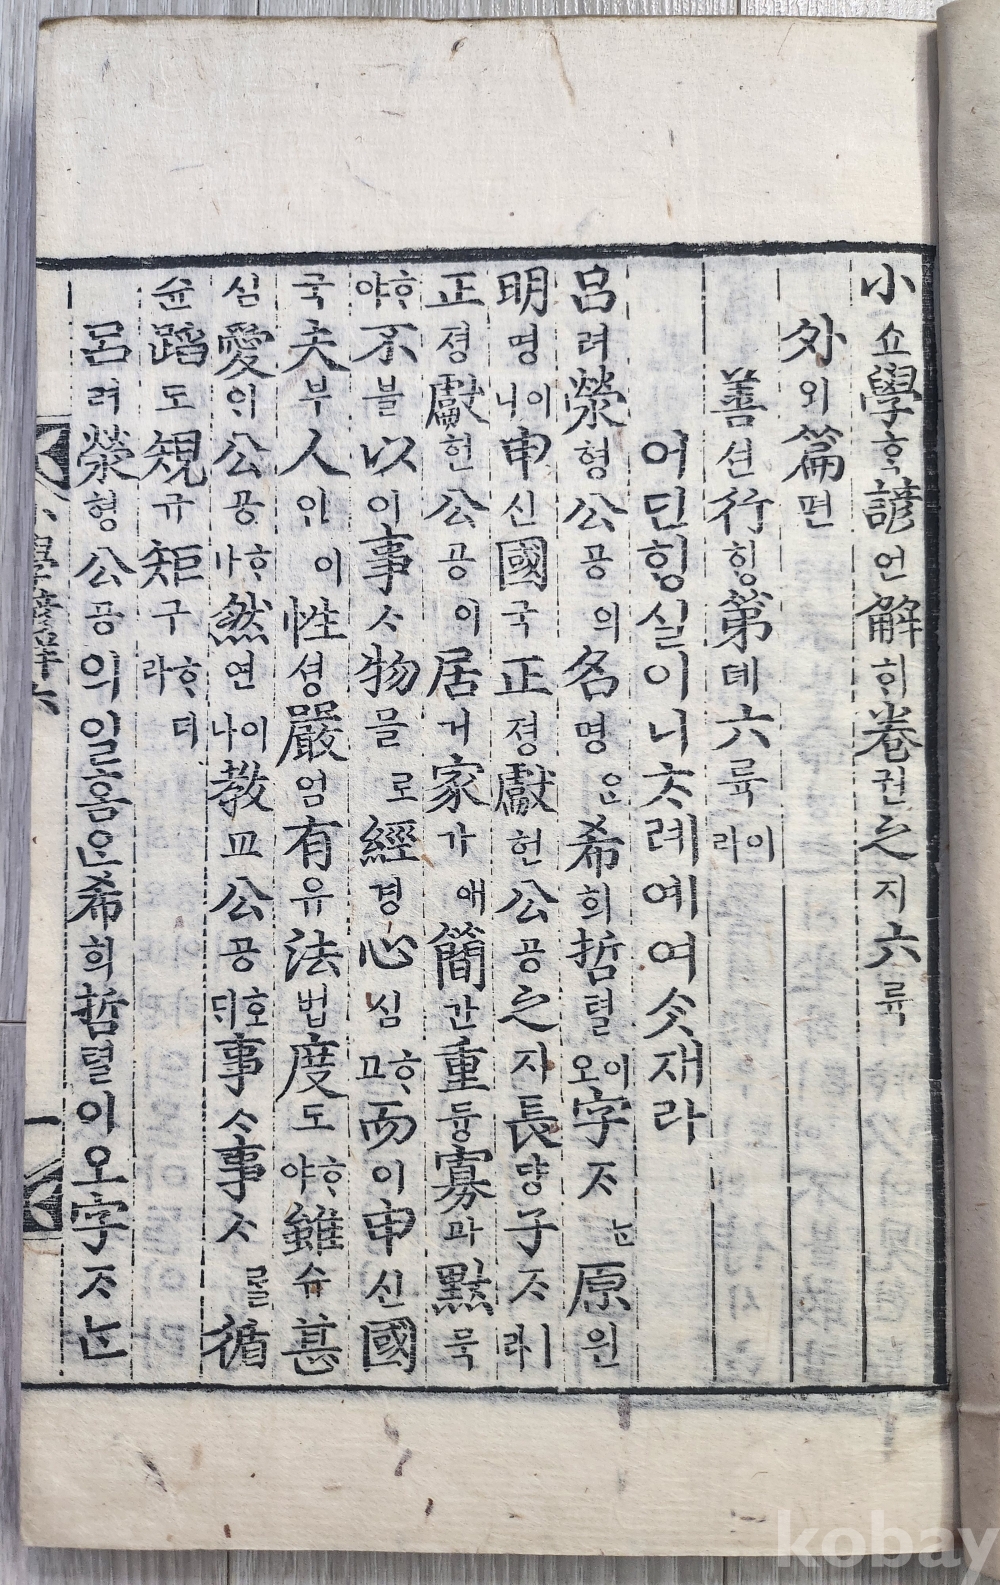 小쇼學ᄒᆞᆨ諺언解ᄒᆡ卷권之지六륙
外외篇편
善션行ᄒᆡᆼ第뎨六륙이라
어딘ᄒᆡᆼ실이니ᄎᆞ례예여ᄉᆞᆺ재라
呂려滎형公공의名명은希희哲텰이오字ᄌᆞᄂᆞᆫ原원
明명이니申신國국正졍獻헌公공之지長댱子ᄌᆞㅣ라
正졍獻헌公공이居거家가애簡간重듕寡과默묵
ᄒᆞ야不블以이事ᄉᆞ物믈로經경心심ᄒᆞ고而이申신國
국夫부人인이性셩嚴엄有유法법度도ᄒᆞ야雖슈甚
심愛ᄋᆡ公공ᄒᆞ나然연이나敎교公공호ᄃᆡ事ᄉᆞ事ᄉᆞᄅᆞᆯ循
슌蹈도規규矩구ᄒᆞ더라
呂려滎형公공의일홈은希희哲텰이오字ᄌᆞᄂᆞᆫ
小學諺解六 一
kobay